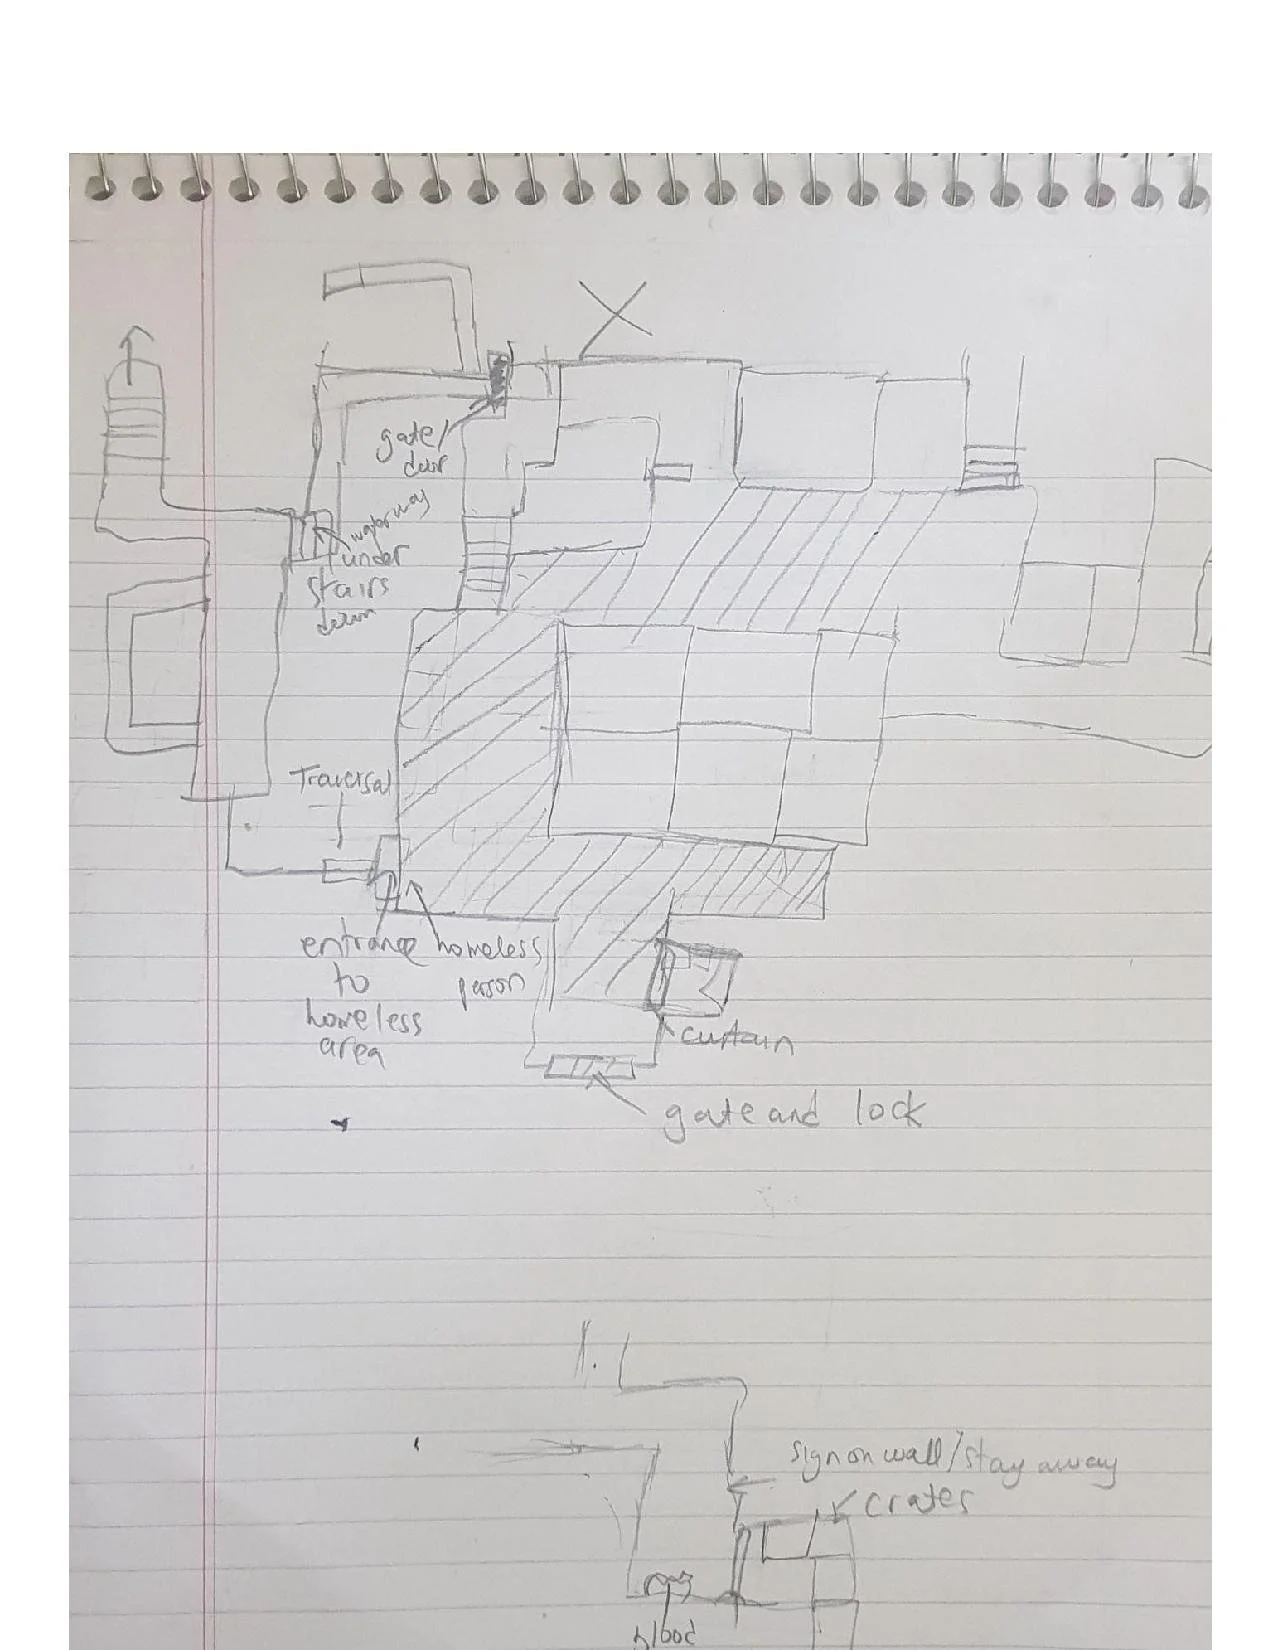 gate/
door
waterway
under
stairs
down
Traversal
entrance
to
homeless
area
homeless
person
curtain
gate and lock
sign on wall/stay away
crates
blood